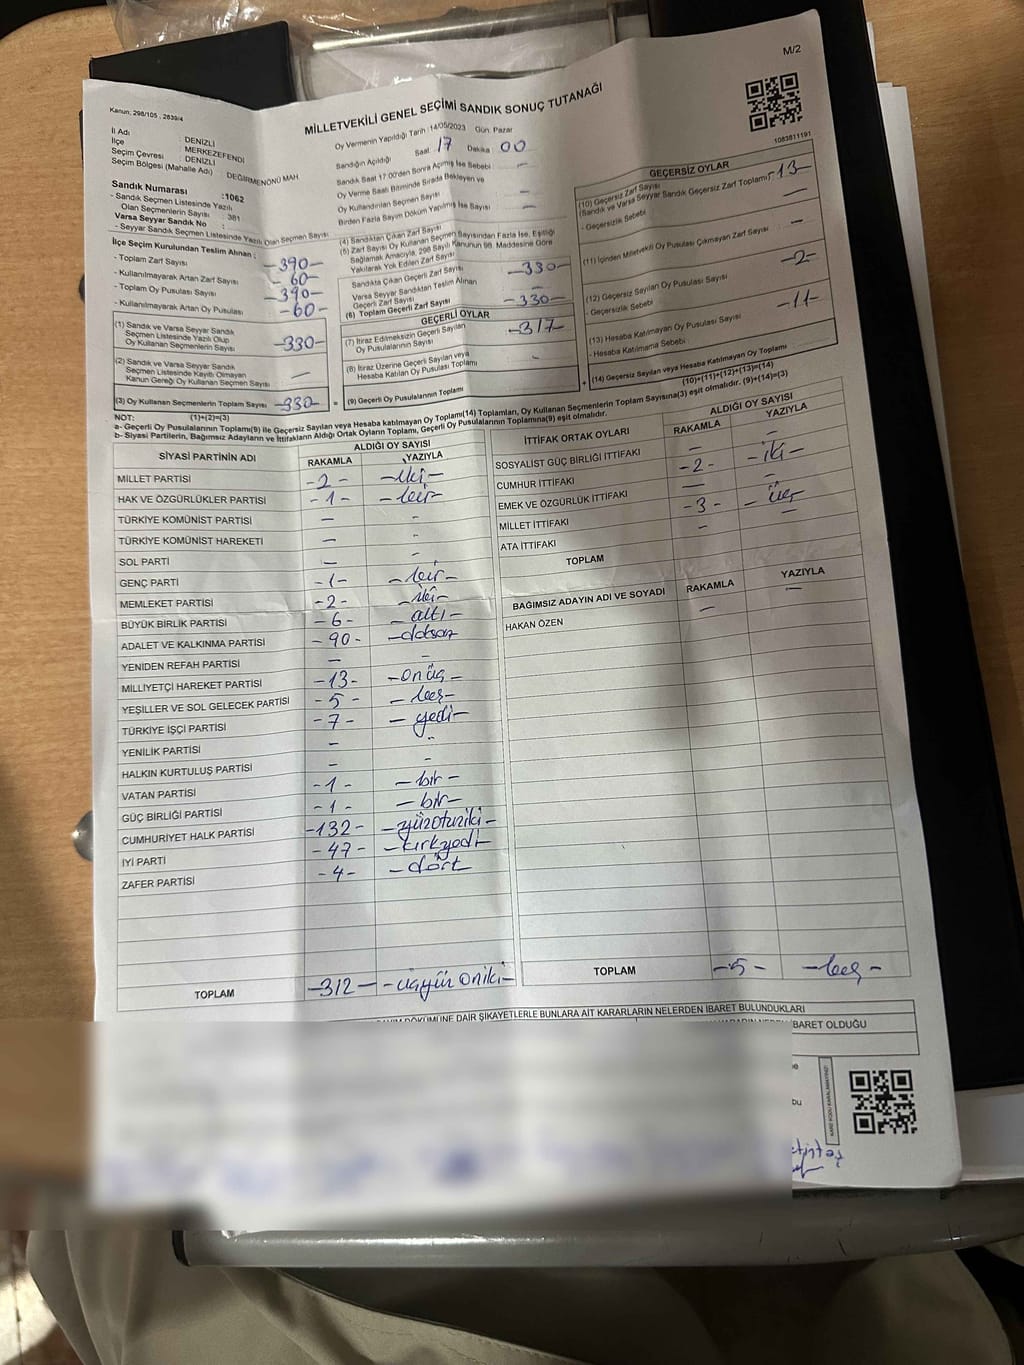 M/2
Kanun: 298/105 , 2839/4
MİLLETVEKİLİ GENEL SEÇİMİ SANDIK SONUÇ TUTANAĞI
1083811191
İl Adı : DENİZLİ
İlçe : MERKEZEFENDİ
Seçim Çevresi : DENİZLİ
Seçim Bölgesi (Mahalle Adı) : DEĞİRMENÖNÜ MAH.
Sandık Numarası : 1062
- Sandık Seçmen Listesinde Yazılı
Olan Seçmenlerin Sayısı : 381
Varsa Seyyar Sandık No :
- Seyyar Sandık Seçmen Listesinde Yazılı Olan Seçmen Sayısı
Oy Vermenin Yapıldığı Tarih : 14/05/2023 Gün: Pazar
Sandığın Açıldığı Saat: 17 Dakika 00
Sandık Saat 17:00'den Sonra Açılmış İse Sebebi -
Oy Verme Saati Bitiminde Sırada Bekleyen ve
Oy Kullandırılan Seçmen Sayısı -
Birden Fazla Sayım Döküm Yapılmış İse Sayısı -
İlçe Seçim Kurulundan Teslim Alınan ;
- Toplam Zarf Sayısı -390-
- Kullanılmayarak Artan Zarf Sayısı - 60-
- Toplam Oy Pusulası Sayısı -390-
- Kullanılmayarak Artan Oy Pusulası -60-
(1) Sandık ve Varsa Seyyar Sandık
Seçmen Listesinde Yazılı Olup
Oy Kullanan Seçmenlerin Sayısı -330-
(2) Sandık ve Varsa Seyyar Sandık
Seçmen Listesinde Kayıtlı Olmayan
Kanun Gereği Oy Kullanan Seçmen Sayısı -
(3) Oy Kullanan Seçmenlerin Toplam Sayısı -330-
(1)+(2)=(3)
(4) Sandıktan Çıkan Zarf Sayısı
(5) Zarf Sayısı Oy Kullanan Seçmen Sayısından Fazla İse, Eşitliği
Sağlamak Amacıyla, 298 Sayılı Kanunun 98. Maddesine Göre
Yakılarak Yok Edilen Zarf Sayısı
Sandıkta Çıkan Geçerli Zarf Sayısı -330-
Varsa Seyyar Sandıktan Teslim Alınan
Geçerli Zarf Sayısı -
(6) Toplam Geçerli Zarf Sayısı -330-
GEÇERLİ OYLAR
(7) İtiraz Edilmeksizin Geçerli Sayılan
Oy Pusulalarının Sayısı -317-
(8) İtiraz Üzerine Geçerli Sayılan veya
Hesaba Katılan Oy Pusulası Toplamı -
= (9) Geçerli Oy Pusulalarının Toplamı
GEÇERSİZ OYLAR
(10) Geçersiz Zarf Sayısı
(Sandık ve Varsa Seyyar Sandık Geçersiz Zarf Toplamı) -13-
- Geçersizlik Sebebi -
(11) İçinden Milletvekili Oy Pusulası Çıkmayan Zarf Sayısı -
(12) Geçersiz Sayılan Oy Pusulası Sayısı -2-
- Geçersizlik Sebebi
(13) Hesaba Katılmayan Oy Pusulası Sayısı -11-
- Hesaba Katılmama Sebebi
+ (14) Geçersiz Sayılan veya Hesaba Katılmayan Oy Toplamı
(10)+(11)+(12)+(13)=(14)
NOT:
a- Geçerli Oy Pusulalarının Toplamı(9) ile Geçersiz Sayılan veya Hesaba katılmayan Oy Toplamı(14) Toplamları, Oy Kullanan Seçmenlerin Toplam Sayısına(3) eşit olmalıdır. (9)+(14)=(3)
b- Siyasi Partilerin, Bağımsız Adayların ve İttifakların Aldığı Ortak Oyların Toplamı, Geçerli Oy Pusulalarının Toplamına(9) eşit olmalıdır.
SİYASİ PARTİNİN ADI ALDIĞI OY SAYISI
RAKAMLA YAZIYLA
MİLLET PARTİSİ -2- -iki-
HAK VE ÖZGÜRLÜKLER PARTİSİ -1- -bir-
TÜRKİYE KOMÜNİST PARTİSİ - -
TÜRKİYE KOMÜNİST HAREKETİ - -
SOL PARTİ - -
GENÇ PARTİ -1- -bir-
MEMLEKET PARTİSİ -2- -iki-
BÜYÜK BİRLİK PARTİSİ -6- -altı-
ADALET VE KALKINMA PARTİSİ -90- -doksan
YENİDEN REFAH PARTİSİ - -
MİLLİYETÇİ HAREKET PARTİSİ -13- -onüç-
YEŞİLLER VE SOL GELECEK PARTİSİ -5- -beş-
TÜRKİYE İŞÇİ PARTİSİ -7- -yedi-
YENİLİK PARTİSİ - -
HALKIN KURTULUŞ PARTİSİ - -
VATAN PARTİSİ -1- -bir-
GÜÇ BİRLİĞİ PARTİSİ -1- -bir-
CUMHURİYET HALK PARTİSİ -132- -yüzotuziki-
İYİ PARTİ -47- -kırkyedi
ZAFER PARTİSİ -4- -dört
TOPLAM -312- -üçyüz oniki-
İTTİFAK ORTAK OYLARI ALDIĞI OY SAYISI
RAKAMLA YAZIYLA
SOSYALİST GÜÇ BİRLİĞİ İTTİFAKI - -
CUMHUR İTTİFAKI -2- -iki-
EMEK VE ÖZGÜRLÜK İTTİFAKI - -
MİLLET İTTİFAKI -3- -üç-
ATA İTTİFAKI - -
TOPLAM
BAĞIMSIZ ADAYIN ADI VE SOYADI RAKAMLA YAZIYLA
HAKAN ÖZEN - -
TOPLAM -5- -beş-
DÖKÜMÜNE DAİR ŞİKAYETLERLE BUNLARA AİT KARARLARIN NELERDEN İBARET BULUNDUKLARI
İBARET OLDUĞU